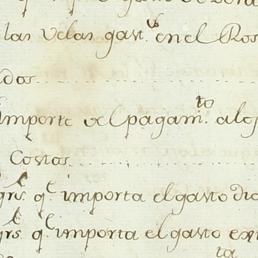 las velas gast.s en el Ros
dos
importe del pagam.to al
Costas
q.e importa el gasto dio
q.e importa el gasto ex